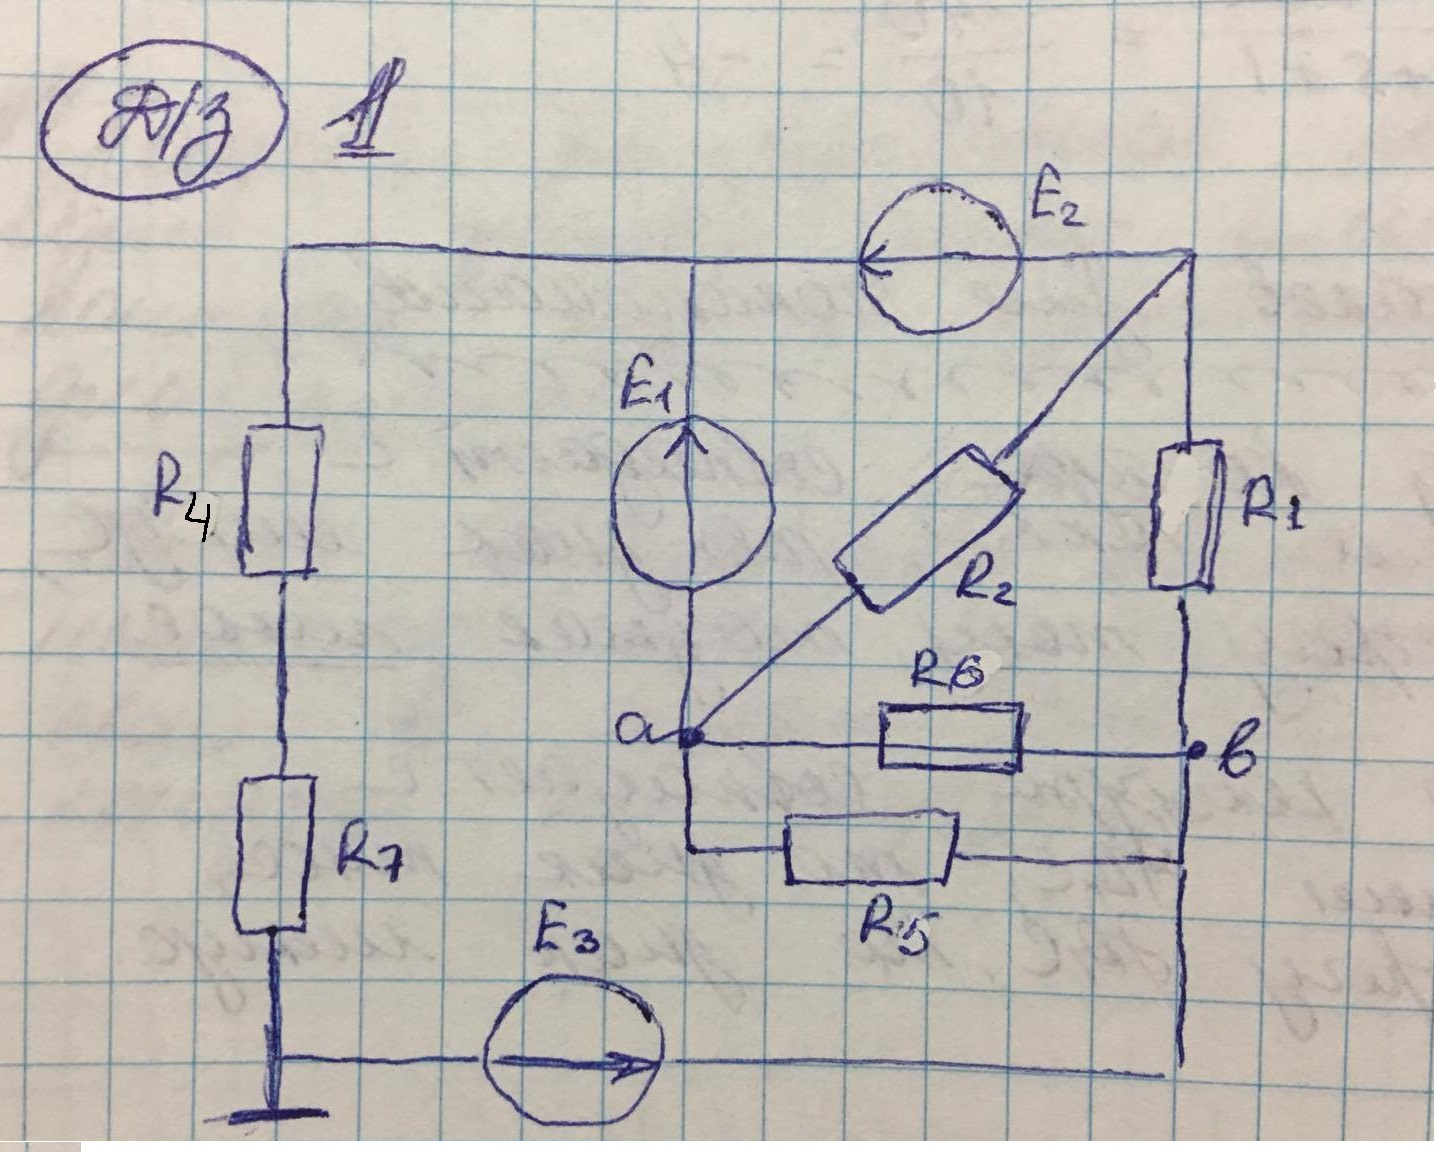 Д/З 1
E2
E1
R4
R2
R1
R6
a
в
R7
R5
E3